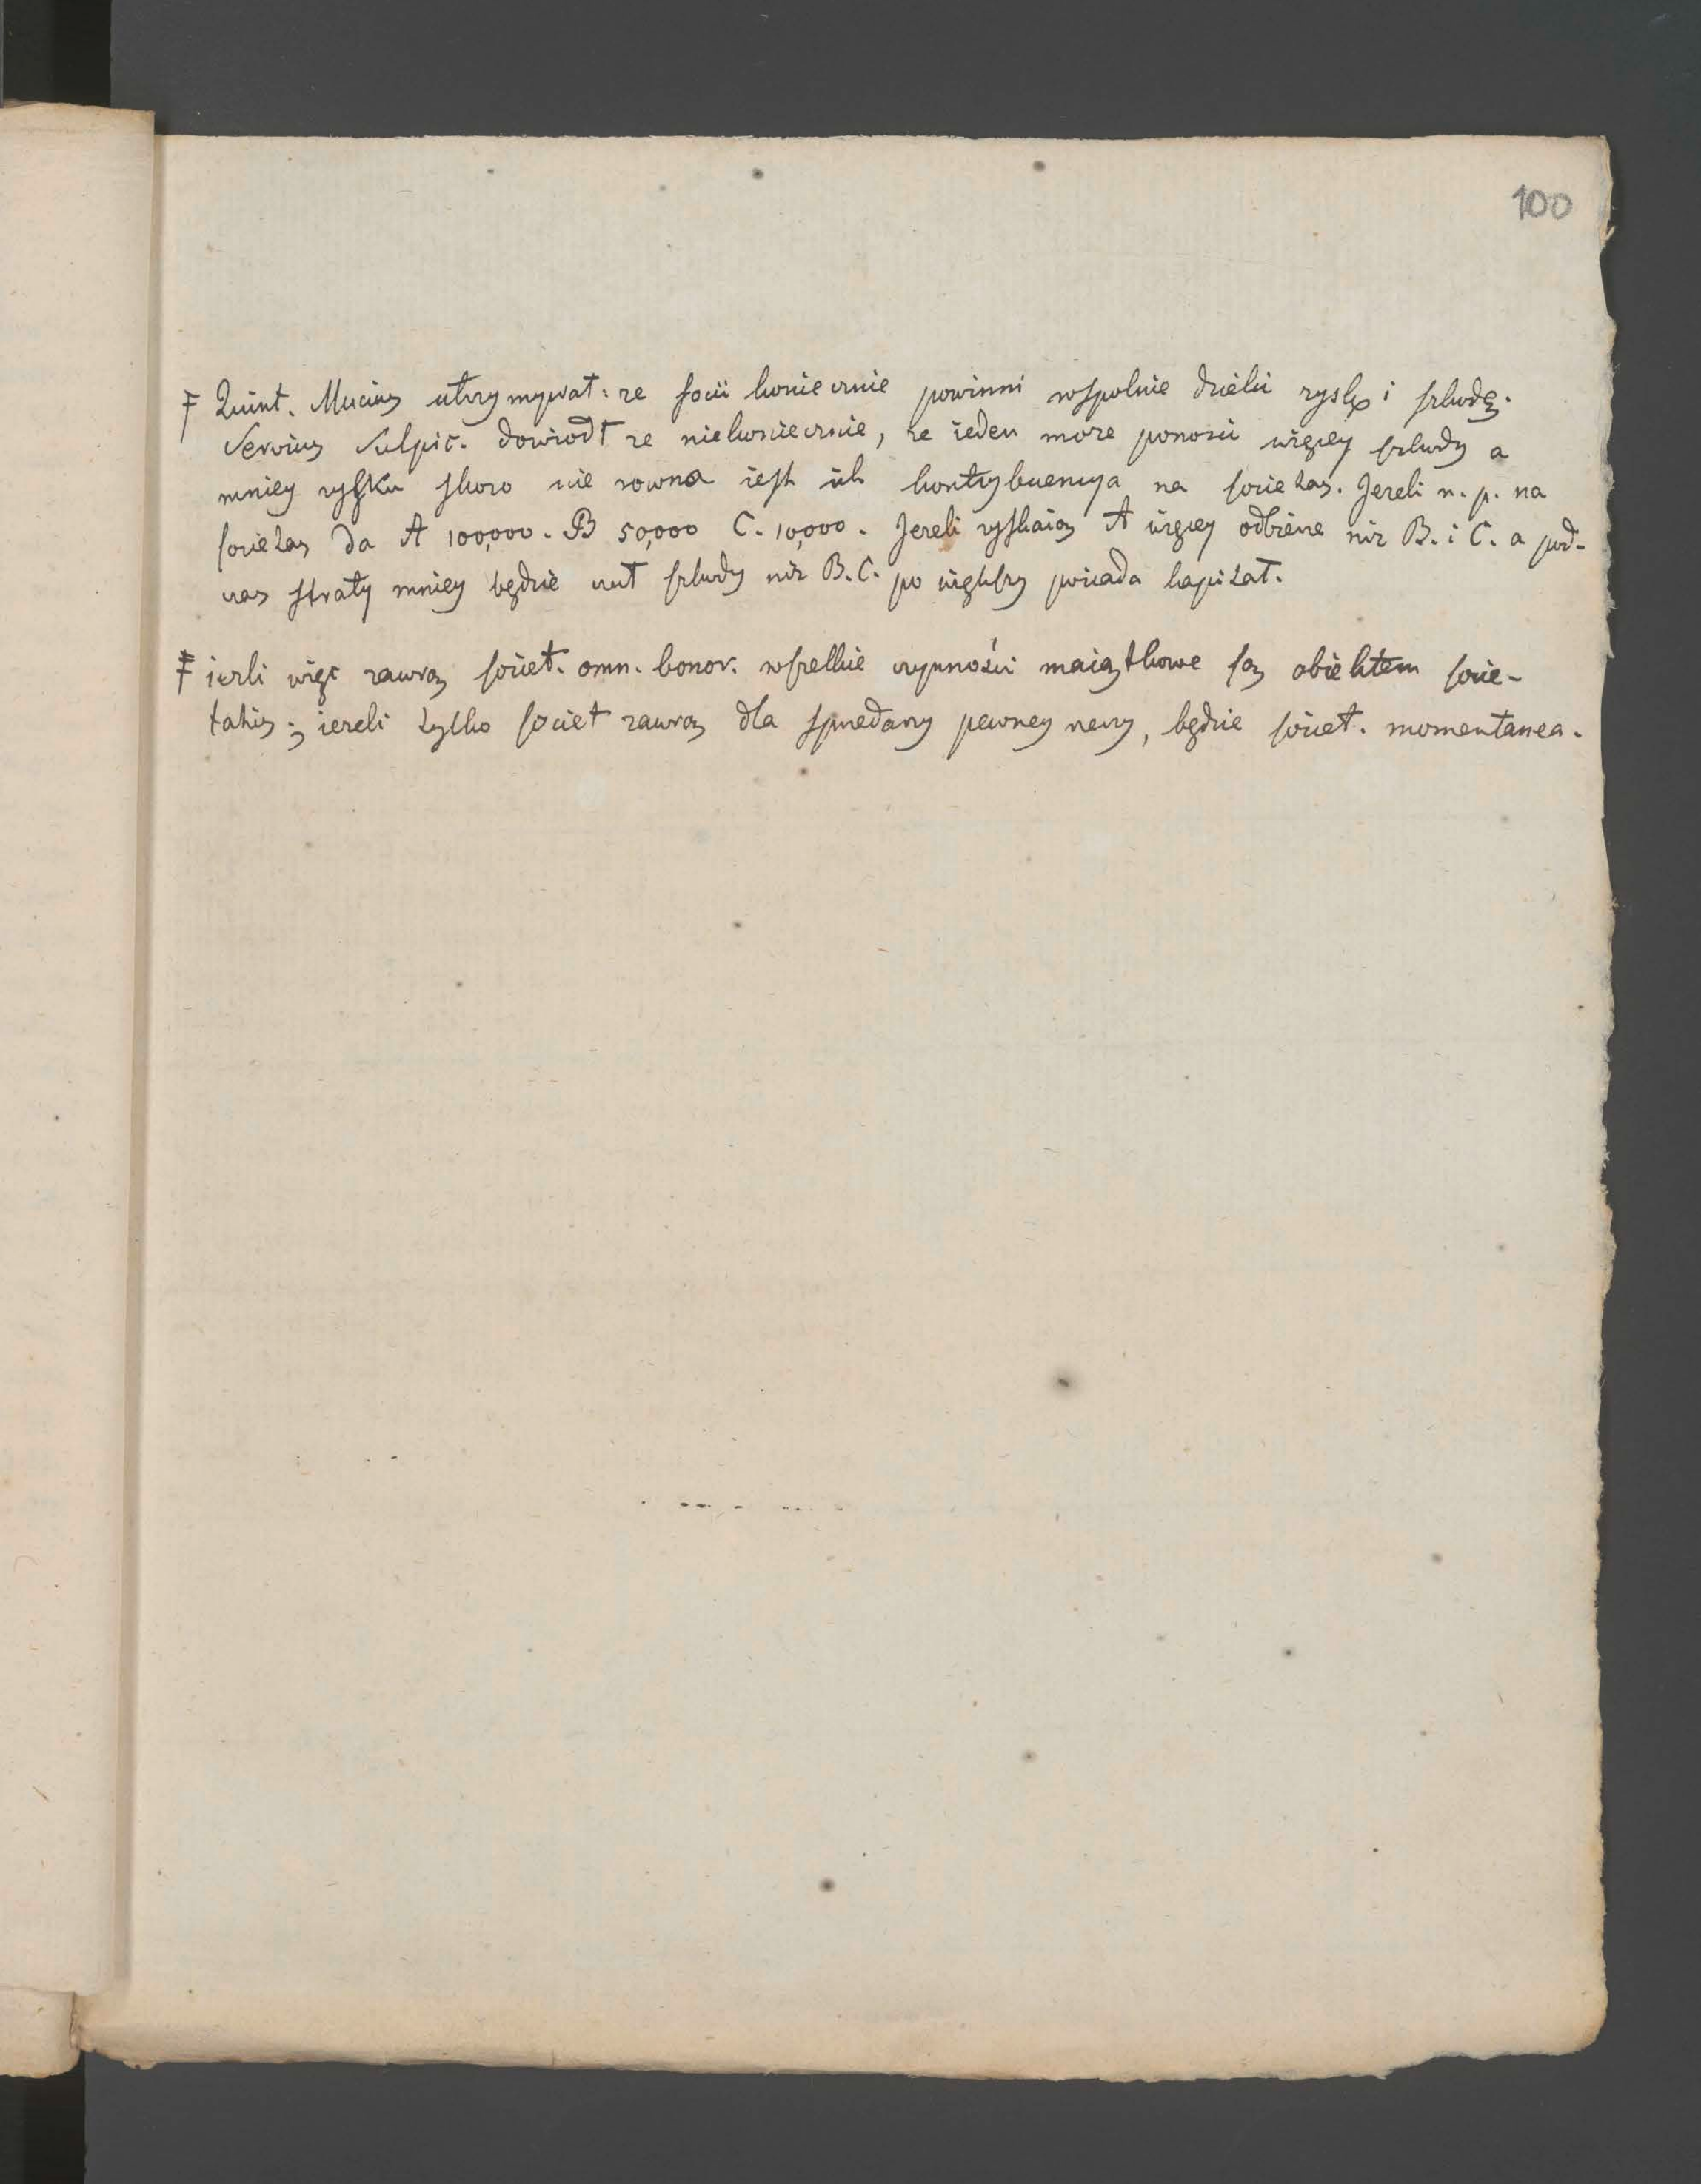 100
Ŧ Quint. Mucius utrzymywał: że socii koniecznie powinni wspolnie dzielić zyskę i szkodę.
Servius Sulpic. dowiodł że niekoniecznie, że ieden może ponosić więcey szkody a
mniey zysku skoro nie rowna iest ich kontrybuencya na societas. Jeżeli n. p. na
societas da A 100,000. B 50,000 C. 10,000. Jeżeli zyskaią A więcey odbierze niż B. i C. a pod-
czas straty mniey będzie czuł szkody niż B. C. bo większy posiada kapitał.
Ŧ ieżli więc zawrą societ. omn. bonor. wszelkie czynności maiątkowe są obiektem socie-
tatis; ieżeli tylko societ zawrą dla sprzedarzy pewney rzeczy, będzie societ. momentanea.